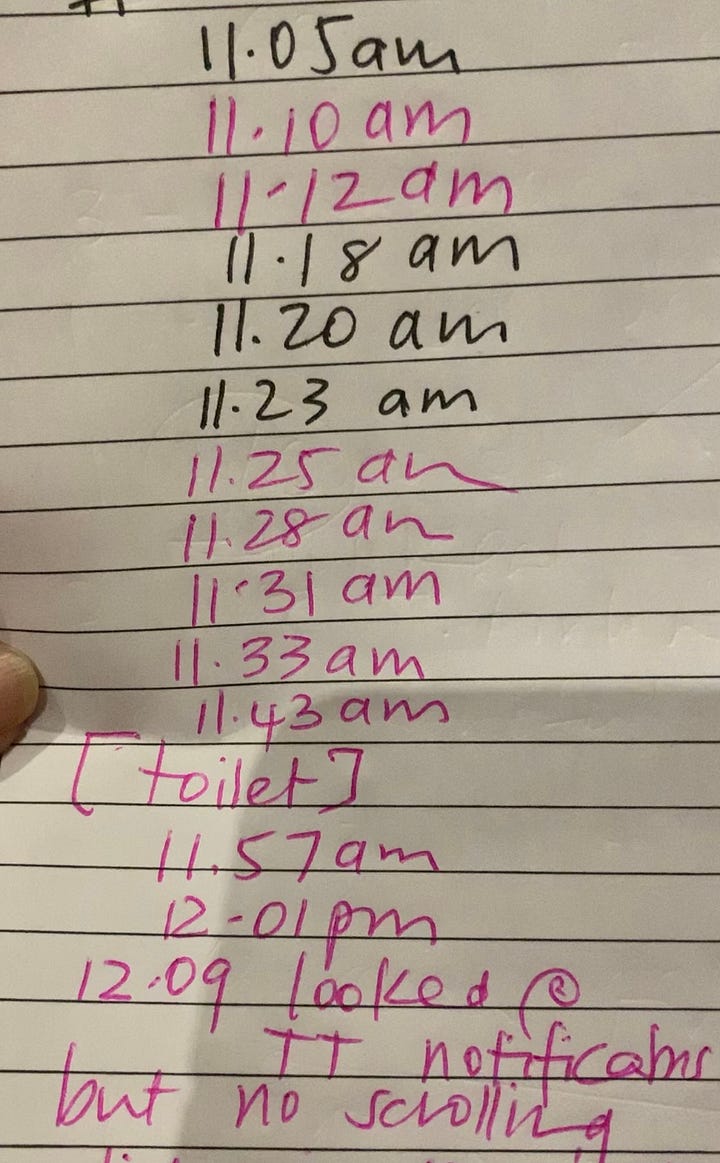 11.05am
11.10 am
11.12 am
11.18 am
11.20 am
11.23 am
11.25 am
11.28 am
11.31 am
11.33 am
11.43 am
[toilet]
11.57am
12.01pm
12.09 looked @
TT notificatns
but no scrolling